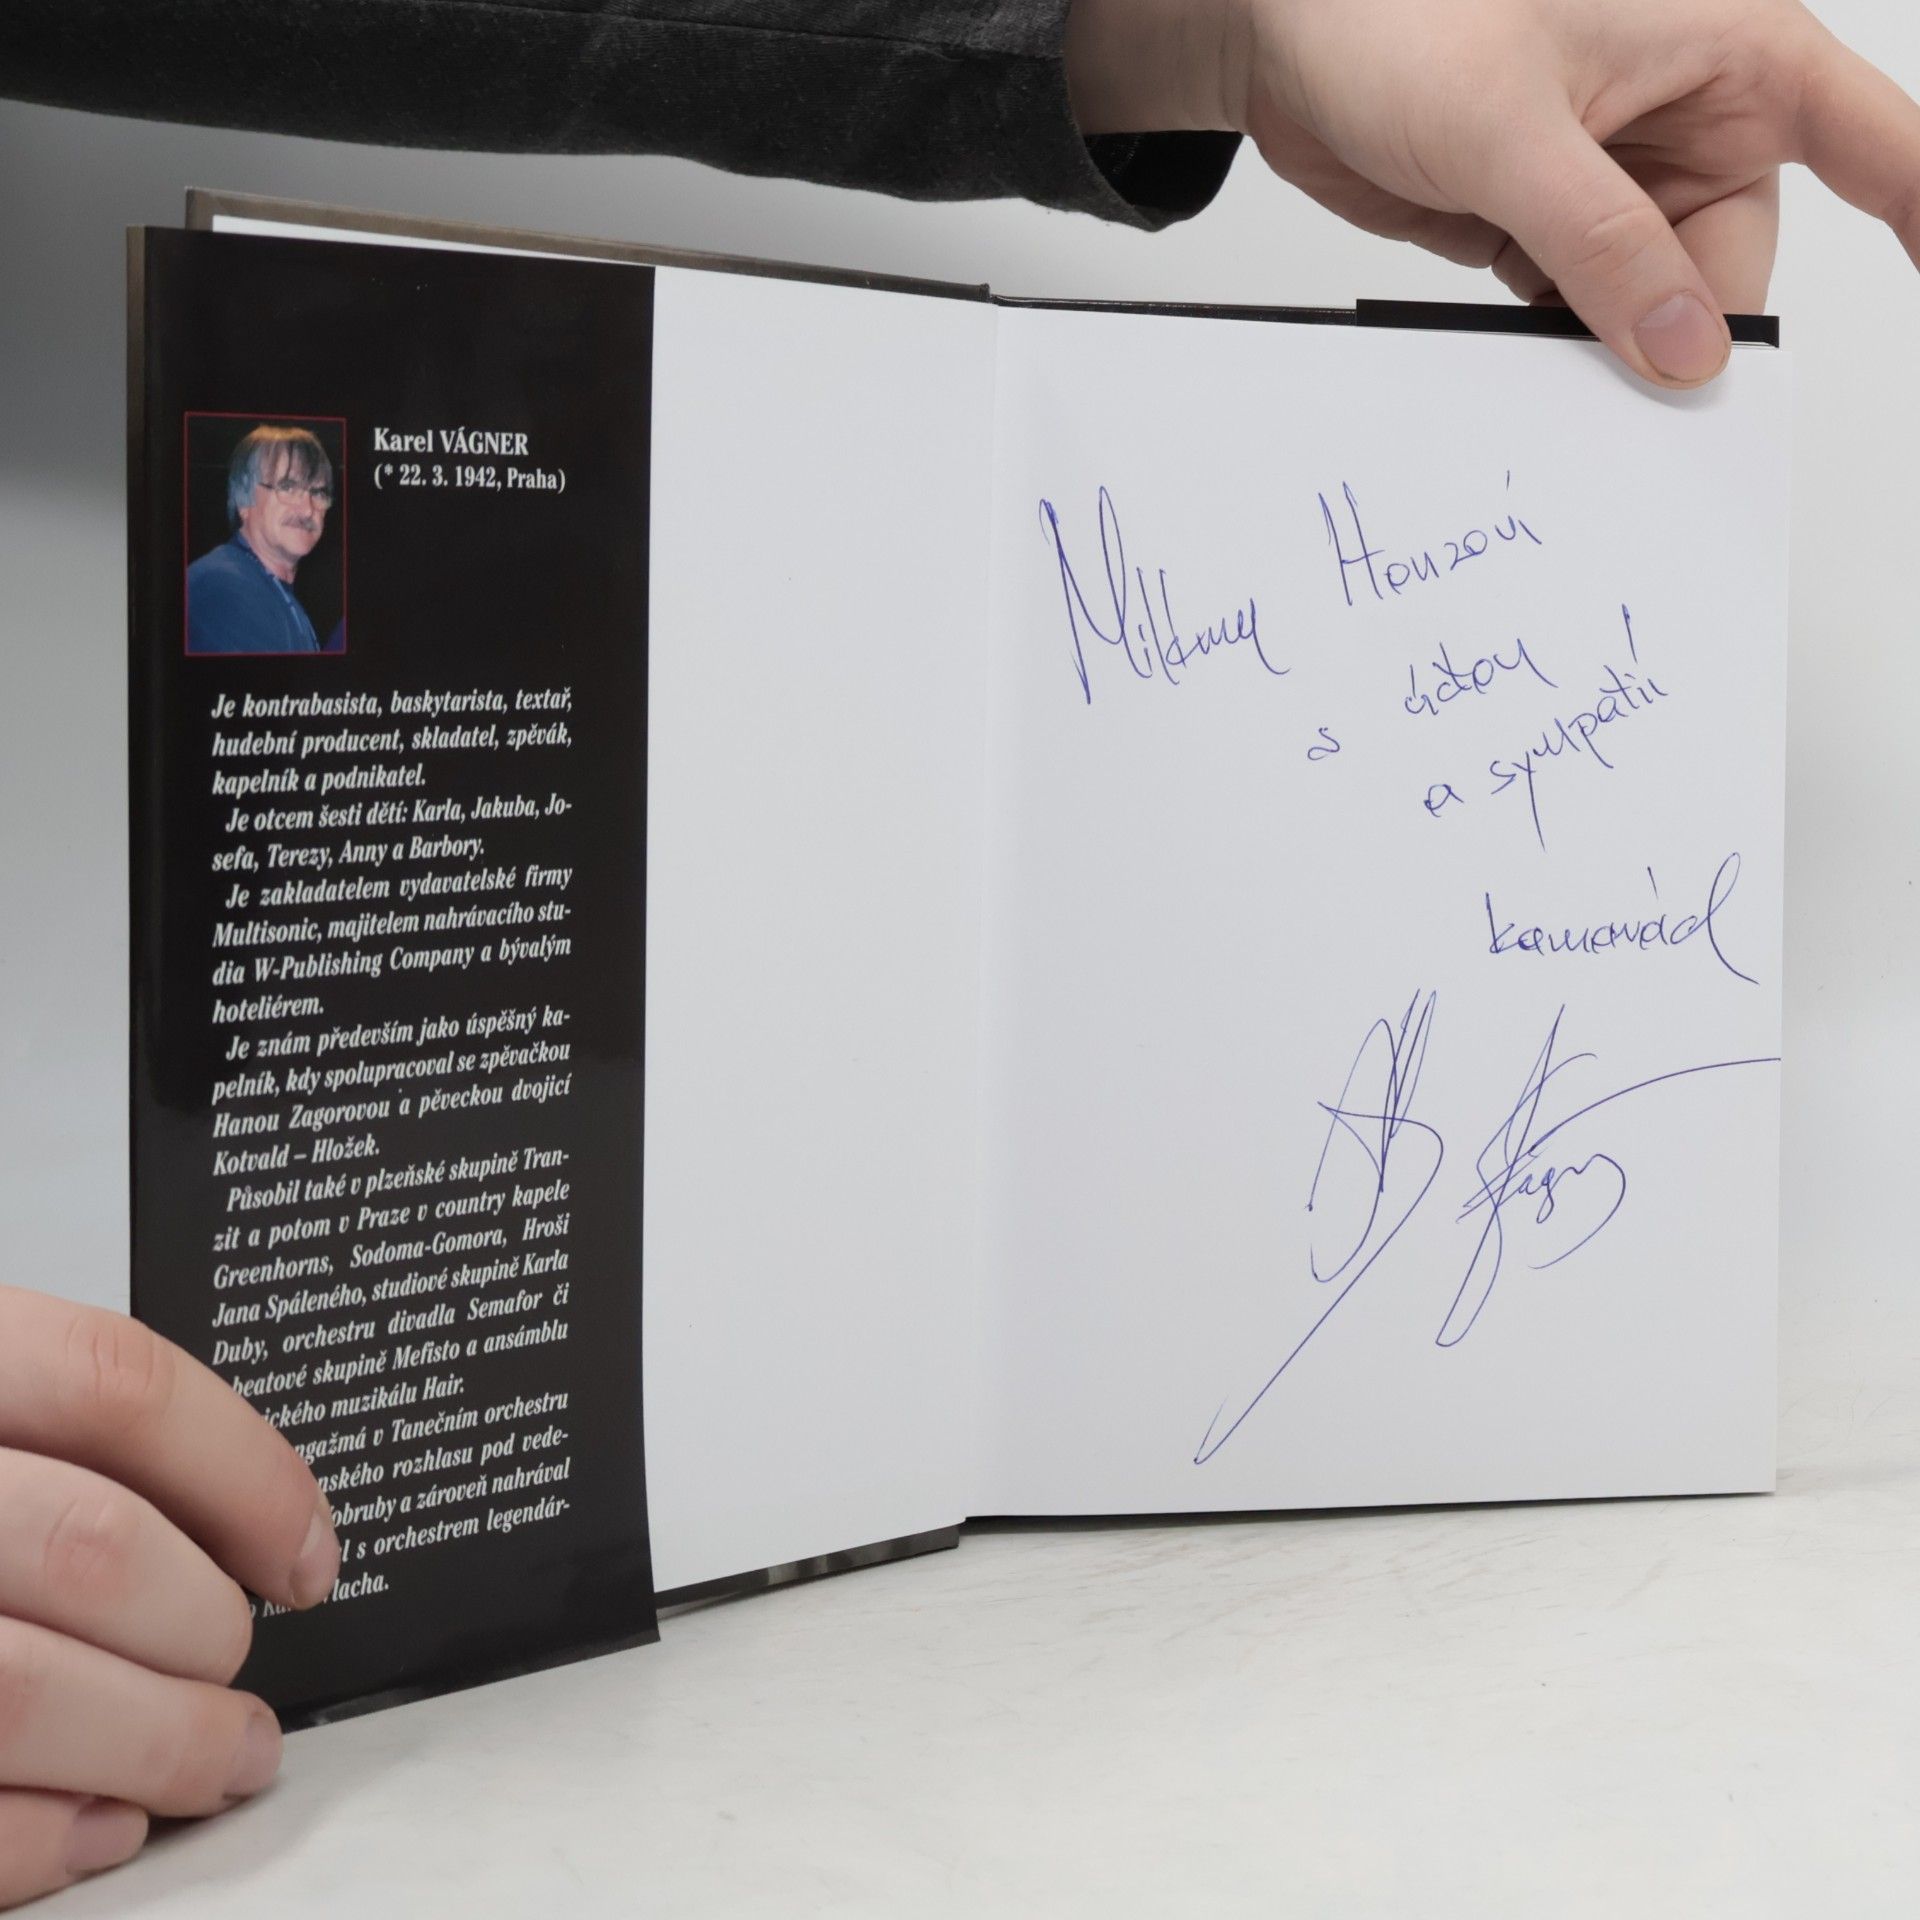 Karel VÁGNER
(* 22. 3. 1942, Praha)
Je kontrabasista, baskytarista, textař,
hudební producent, skladatel, zpěvák,
kapelník a podnikatel.
Je otcem šesti dětí: Karla, Jakuba, Jo-
sefa, Terezy, Anny a Barbory.
Je zakladatelem vydavatelské firmy
Multisonic, majitelem nahrávacího stu-
dia W-Publishing Company a bývalým
hoteliérem.
Je znám především jako úspěšný ka-
pelník, kdy spolupracoval se zpěvačkou
Hanou Zagorovou a pěveckou dvojicí
Kotvald – Hložek.
Působil také v plzeňské skupině Tran-
zit a potom v Praze v country kapele
Greenhorns, Sodoma-Gomora, Hroši
Jana Spáleného, studiové skupině Karla
Duby, orchestru divadla Semafor či
beatové skupině Mefisto a ansámblu
ického muzikálu Hair.
ngažmá v Tanečním orchestru
nského rozhlasu pod vede-
obruby a zároveň nahrával
l s orchestrem legendár-
lacha.
Milému Honzovi
s úctou
a sympatií
kamarád
Vágner